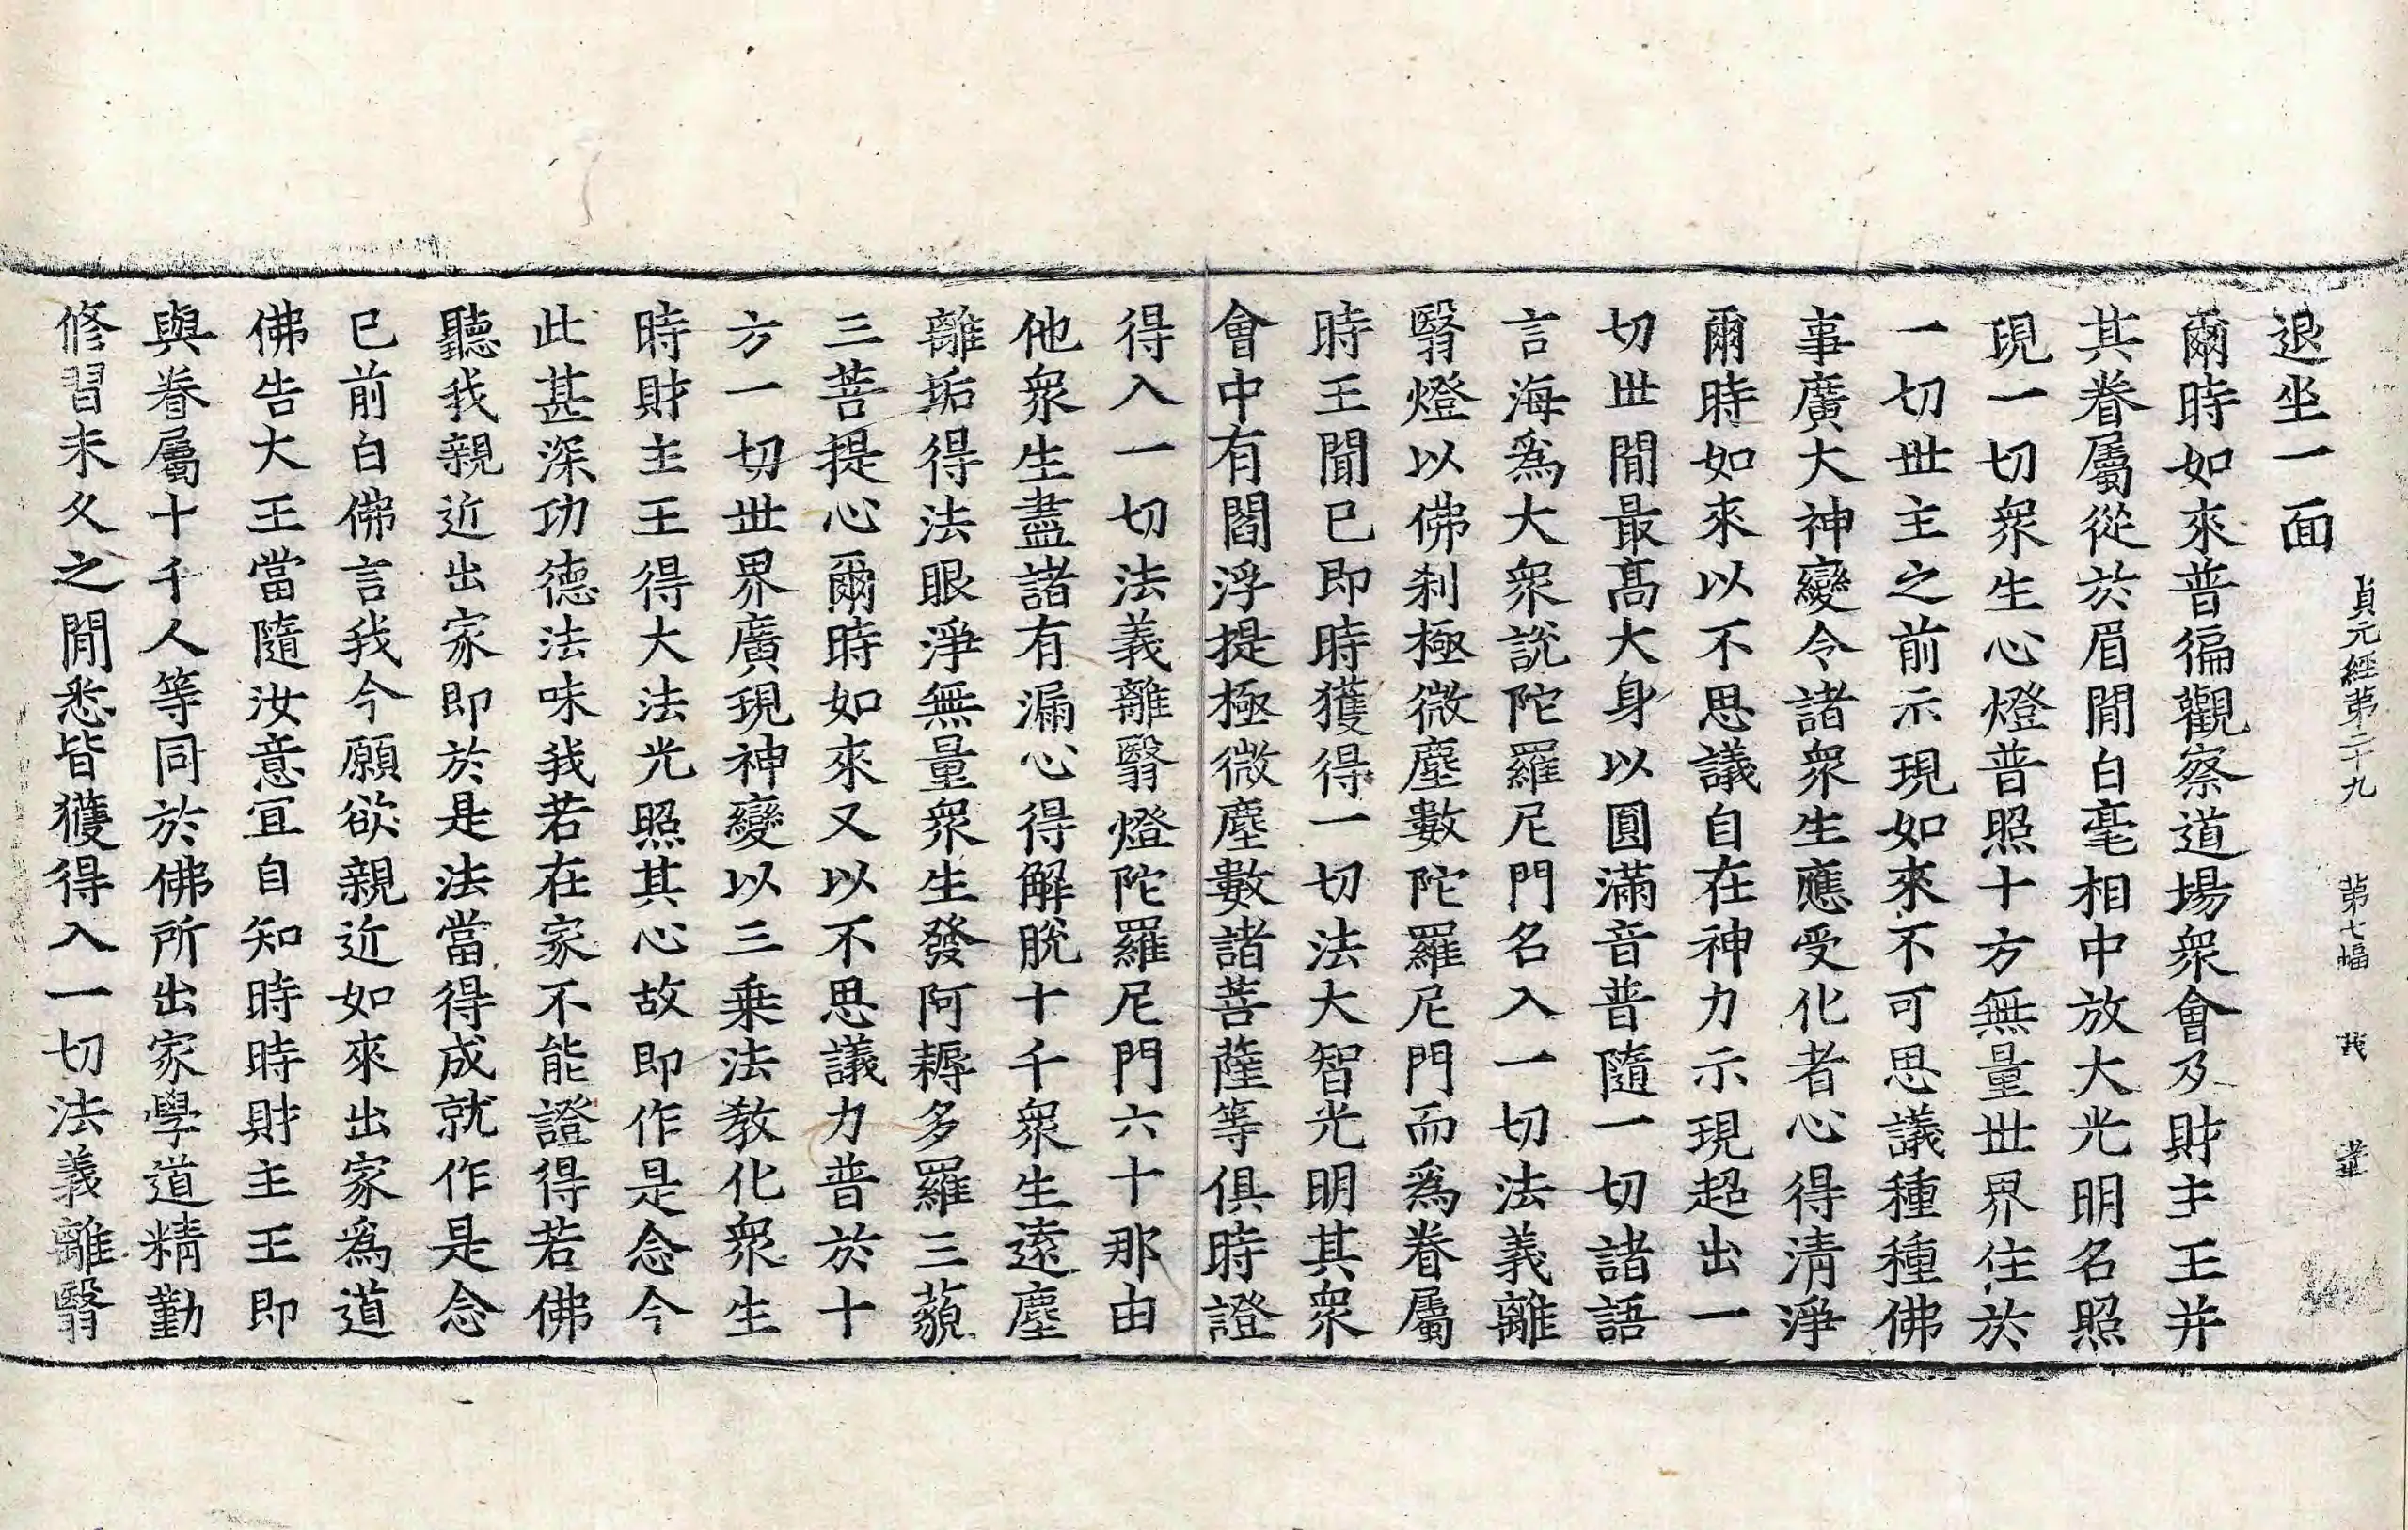 貞元經第二十九 第七幅 我
退坐一面
爾時如來普徧觀察道場衆會及財主王并
其眷屬從於眉閒白毫相中放大光明名照
現一切衆生心燈普照十方無量世界住於
一切世主之前示現如來不可思議種種佛
事廣大神變令諸衆生應受化者心得清淨
爾時如來以不思議自在神力示現超出一
切世閒最髙大身以圓滿音普隨一切諸語
言海爲大衆說陀羅尼門名入一切法義離
翳燈以佛刹極微塵數陀羅尼門而爲眷屬
時王聞已即時獲得一切法大智光明其衆
會中有閻浮提極微塵數諸菩薩等俱時證
得入一切法義離翳燈陀羅尼門六十那由
他衆生盡諸有漏心得解脫十千衆生遠塵
離垢得法眼淨無量衆生發阿耨多羅三藐
三菩提心爾時如來又以不思議力普於十
方一切世界廣現神變以三乗法教化衆生
時財主王得大法光照其心故即作是念今
此甚深功德法味我若在家不能證得若佛
聽我親近出家即於是法當得成就作是念
已前白佛言我今願欲親近如來出家爲道
佛告大王當隨汝意宜自知時時財主王即
與眷屬十千人等同於佛所出家學道精勤
修習未久之閒悉皆獲得入一切法義離翳